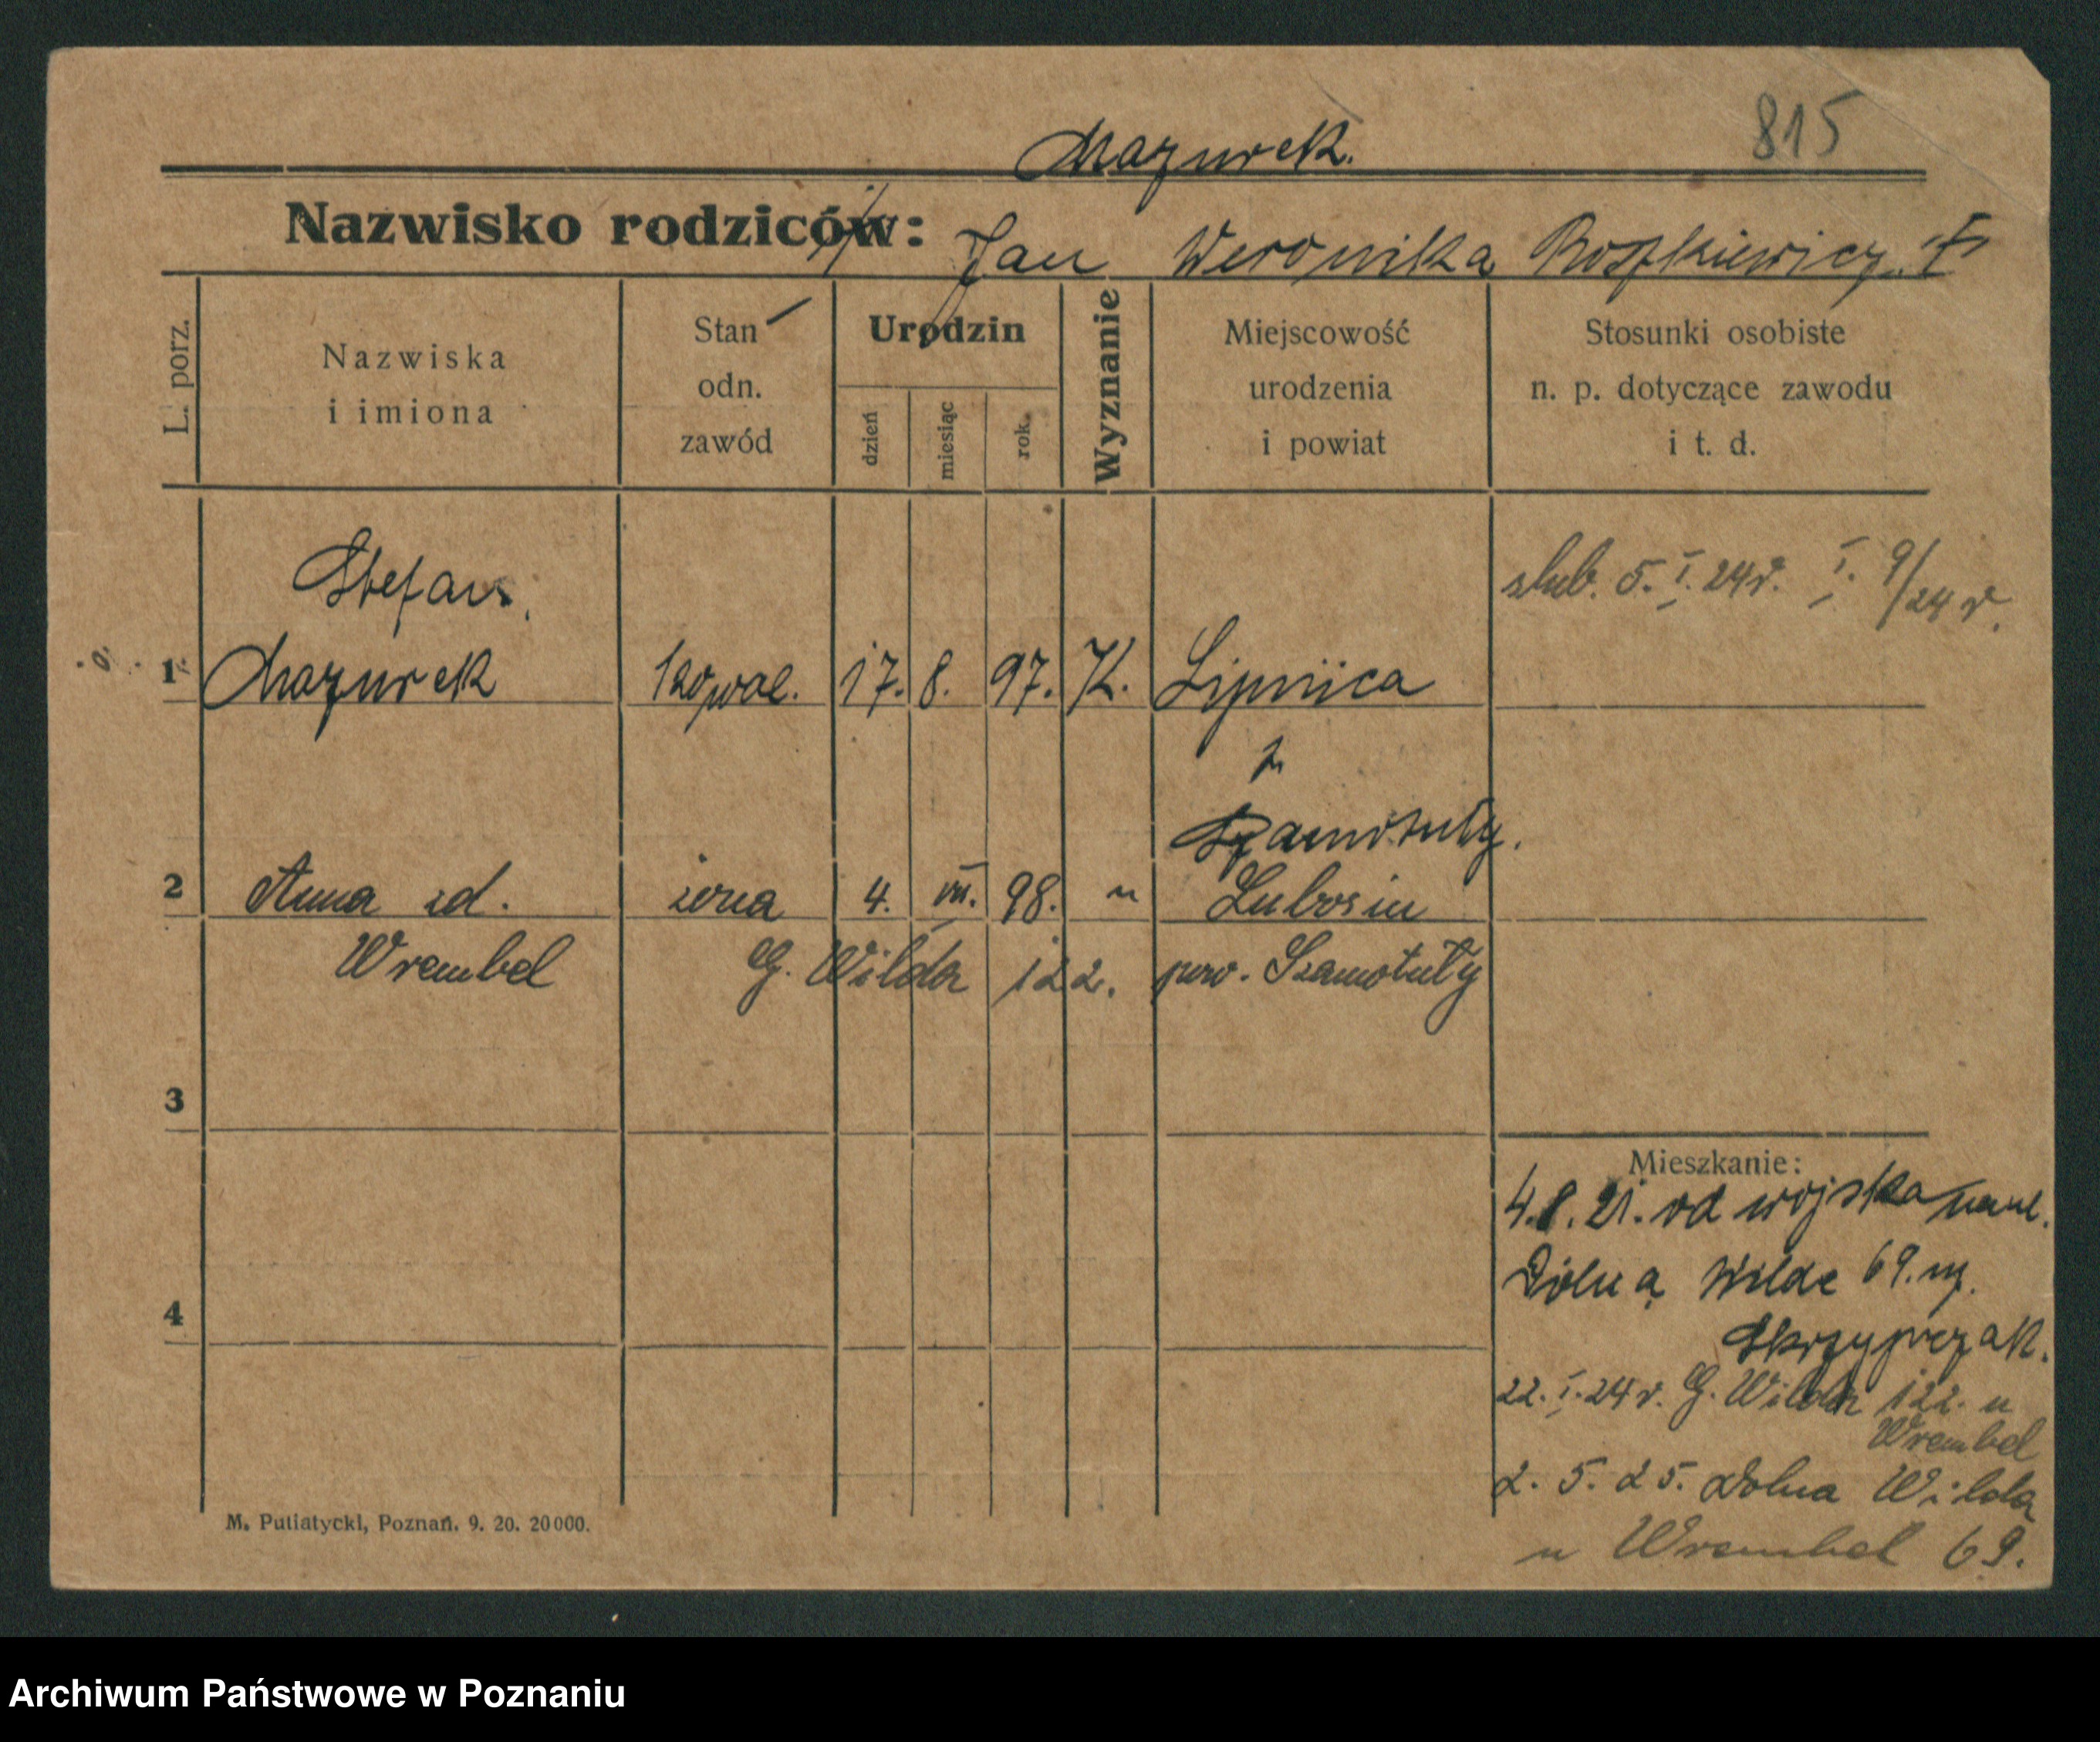 Mazurek.
815
Nazwisko rodziców:
Jan Weronika Roszkiewicz.
L. porz.
Nazwiska
i imiona
Stan
odn.
zawód
Urodzin
dzień
miesiąc
rok.
Wyznanie
Miejscowość
urodzenia
i powiat
Stosunki osobiste
n. p. dotyczące zawodu
i t. d.
Stefan
ślub. 5. I. 24 r. I. 9/24 r.
1 Mazurek kowal. 17. 8. 97. K. Lipnica
Szamotuły.
2 Anna zd. żona 4. VII. 98. " Lubosin
Wrembel G. Wilda 122. pow. Szamotuły
3
4
Mieszkanie:
4.8.21. od wojska na ul.
Dolną Wildę 69.
Skrzypczak.
22. I. 24 r. G. Wilda 122. u
Wrembel
2. 5. 25. Dolna Wilda
u Wrembel 69.
M. Putiatycki, Poznań. 9. 20. 20000.
Archiwum Państwowe w Poznaniu